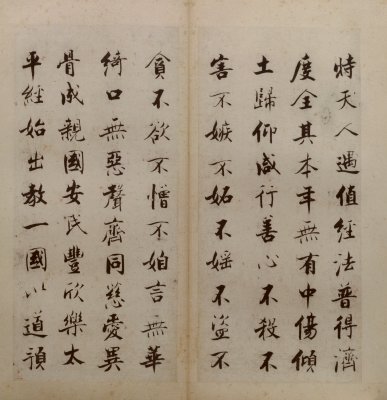 時天人遇值經法普得濟
度全其本年無有中傷傾
土歸仰咸行善心不殺不
害不嫉不妬不婬不盜不
貪不欲不憎不㛍言無華
綺口無惡聲齊同慈愛異
骨成親國安民豐欣樂太
平經始出教一國以道預